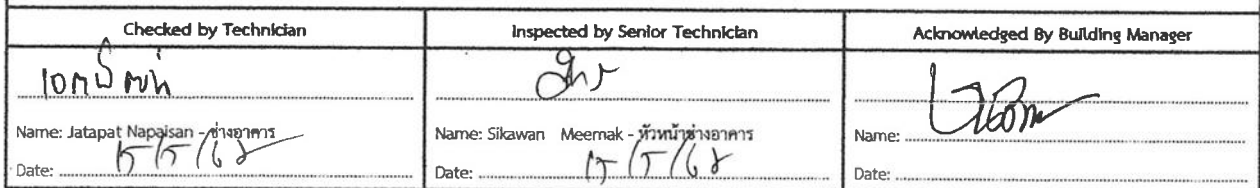 Checked by Technician
Inspected by Senior Technician
Acknowledged By Building Manager
Name: Jatapat Napaisan - ช่างอาคาร
Name: Sikawan Meemak - หัวหน้าช่างอาคาร
Name:
Date:
Date:
Date: